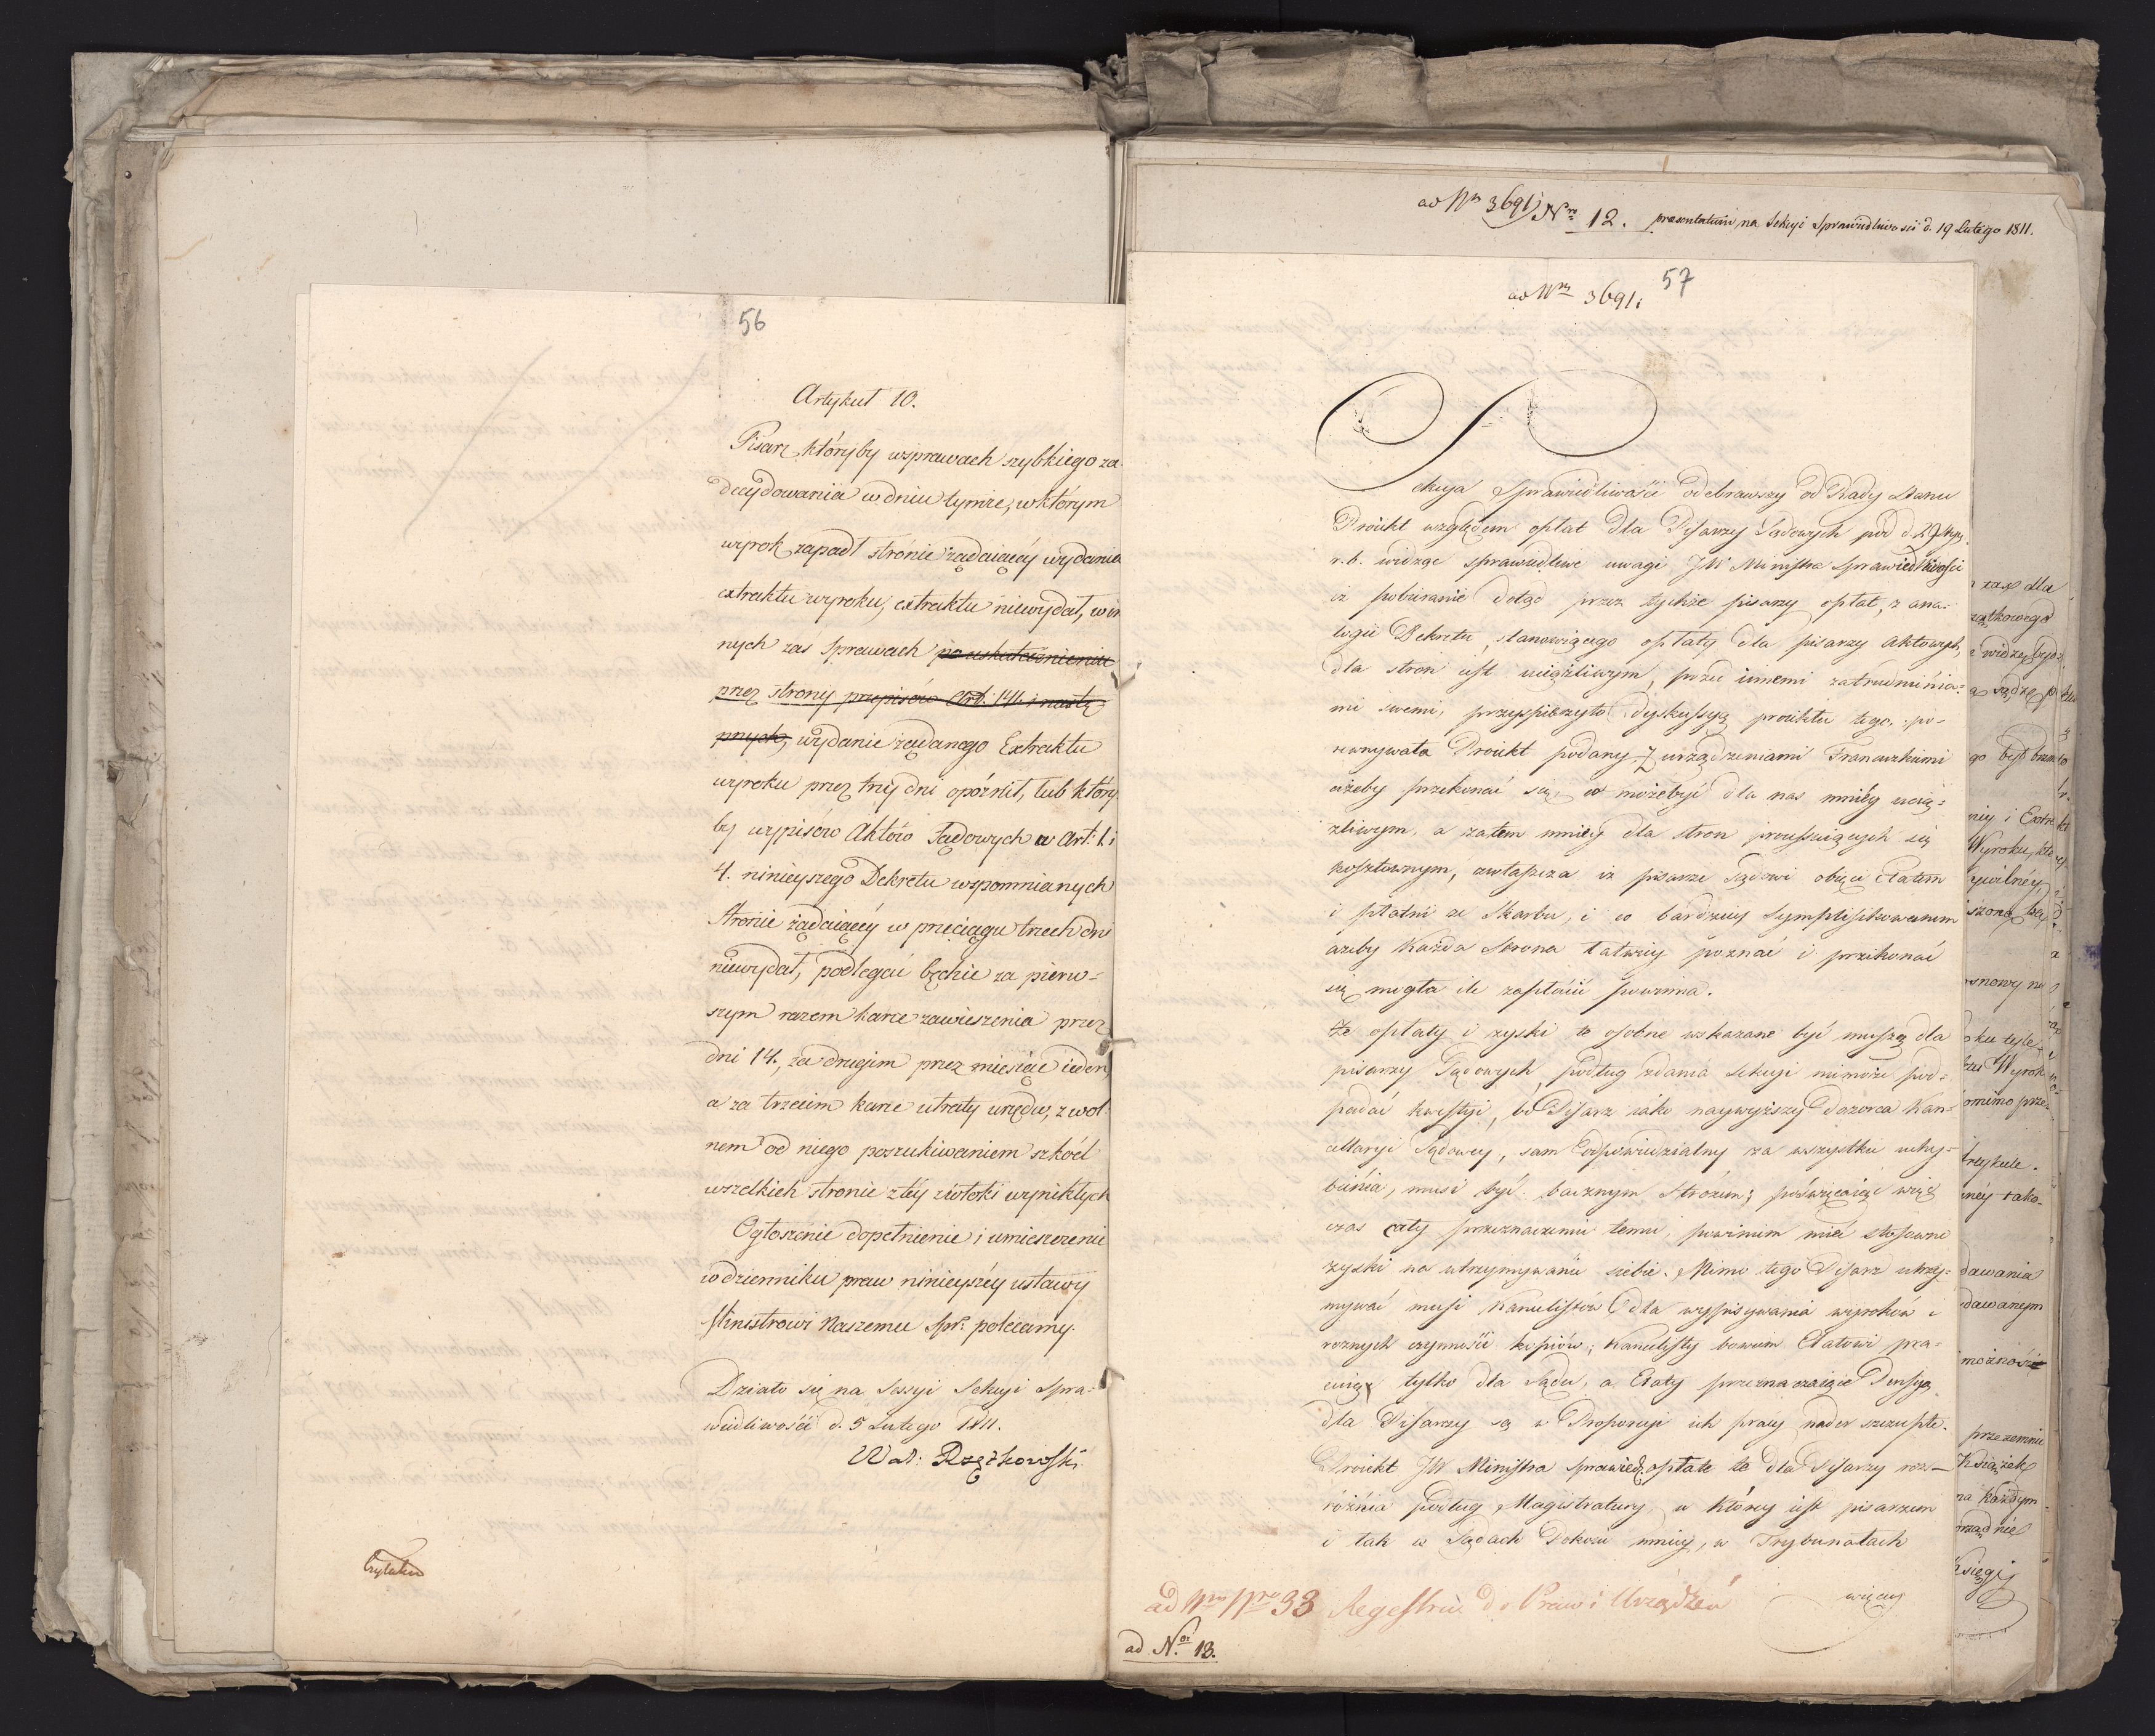 56
Artykuł 10.
Pisarz któryby wsprawach szybkiego za
decydowania w dniu tymże, w którym
wyrok zapadł stronie żądaiącéy wydania
extraktu wyroku, extraktu niewydał, w in
nych zaś sprawach po uskutecznieniu
przez strony przepisów Art: 146 i nastę
pnych, wydanie żądanego Extraktu
wyroku przez trzy dni opóźnił, lub który
by wypisów Aktów Sądowych w Art: 1. i
4. ninieyszego Dekretu wspomnianych
Stronie żądaiącéy w przeciągu trzech dni
niewydał, podlegać będzie za pierw-
szym razem karze zawieszenia przez
dni 14., za drugim przez miesiąc ieden,
a za trzecim karze utraty urzędu, z wol
nem od niego poszukiwaniem szkód
wszelkich stronie z téy zwłoki wynikłych
Ogłoszenie dopełnienie i umieszczenie
w dzienniku praw ninieyszéy ustawy
Ministrowi Naszemu Spr: polecamy.
Działo się na Sessyi Sekcyi Spra-
wiedliwości d. 5 Lutego 1811.
Wal: Rzętkowski
ad Nrm 3691 Nro 12. praesentatum na Sekcyi Sprawiedliwości d. 19 Lutego 1811.
57
ad Nrm 3691.
Sekcya Sprawiedliwości odebrawszy od Rady Stanu
Proiekt względem opłat dla Pisarzy Sądowych pod d.
r. b. widząc sprawiedliwe uwagi JW Ministra Sprawiedliwości
iż pobieranie dotąd przez tychże pisarzy opłat, z ana-
logii Dekretu, stanowiącego opłaty dla pisarzy aktowych,
dla stron iest uciążliwym, przed innemi zatrudnienia-
mi swemi, przyspieszyła dyskussyą proiektu tego, po-
rownywała Proiekt podany z urządzeniami Francuzkiemi
ażeby przekonać się co może być dla nas mniéy ucią-
żliwym, a zatem mniéy dla stron processuiących się
kosztownym, zwłaszcza iż pisarze Sądowi obięci Etatem
i płatni ze Skarbu, i co bardziéy symplifikowanem
ażeby każda Strona łatwiéy poznać i przekonać
się mogła ile zapłacić powinna.
Że opłaty i zyski te osobne wskazane być muszą dla
pisarzy Sądowych, podług zdania Sekcyi niemoże pod-
padać kwestyi, bo Pisarz iako naywyższy Dozorca Kan-
cellaryi Sądowey, sam odpowiedzialny za wszystkie uchy-
bienia, musi być bacznym Strożem; poświęcaiąc więc
czas cały przeznaczeniu temu, powinien mieć stosowne
zyski na utrzymywanie siebie. Mimo tego Pisarz utrzy-
mywać musi Kancelistów dla wypisywania wyroków i
roznych czynności kopiów; Kancelisty bowiem Etatowi pra-
cuią tylko dla Sądu, a Etaty przeznaczaiące Pensyą
dla Pisarzy są w Proporcyi ich pracy nader szczupłe.
Proiekt JW Ministra Sprawied: opłatę tę dla Pisarzy roz-
różnia podług Magistratury w którey iest pisarzem
i tak w Sądach Pokoiu mniéy, w Trybunałach
więcéy
ad Nrm Nro 33 Regestru do Praw i Urządzeń
ad No 13.
tax dla
żątkowego
widzę, być
sądzę
był brze
niy i Extra
Wyroku, któ
ywilnéy,
szone bę
snowy na
ku tyle
Wyrok
omimo prze
trzykule.
inéy tako
dawania
dawanym
możność
przezemnie
Książek
na każdym
rządnie
Księgi